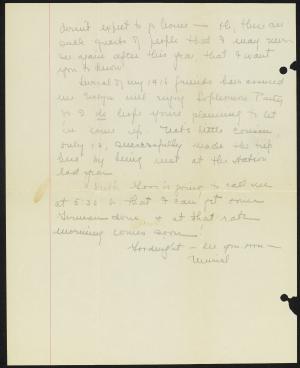 doesn't expect to go home — Oh, there are
such quantities of people that I may never
see again after this year that I want
you to know!
Several of my 1916 friends have assured
me Evelyn will enjoy Sophomore Party
so I do hope you're planning to let
her come up. Neal's little cousin,
only 12, successfully made the trip
here by being met at the station
last year.
Ruth is going to call me
at 5:30 so that I can get some
German done, & at that rate
morning comes soon!
Goodnight — see you soon —
Muriel